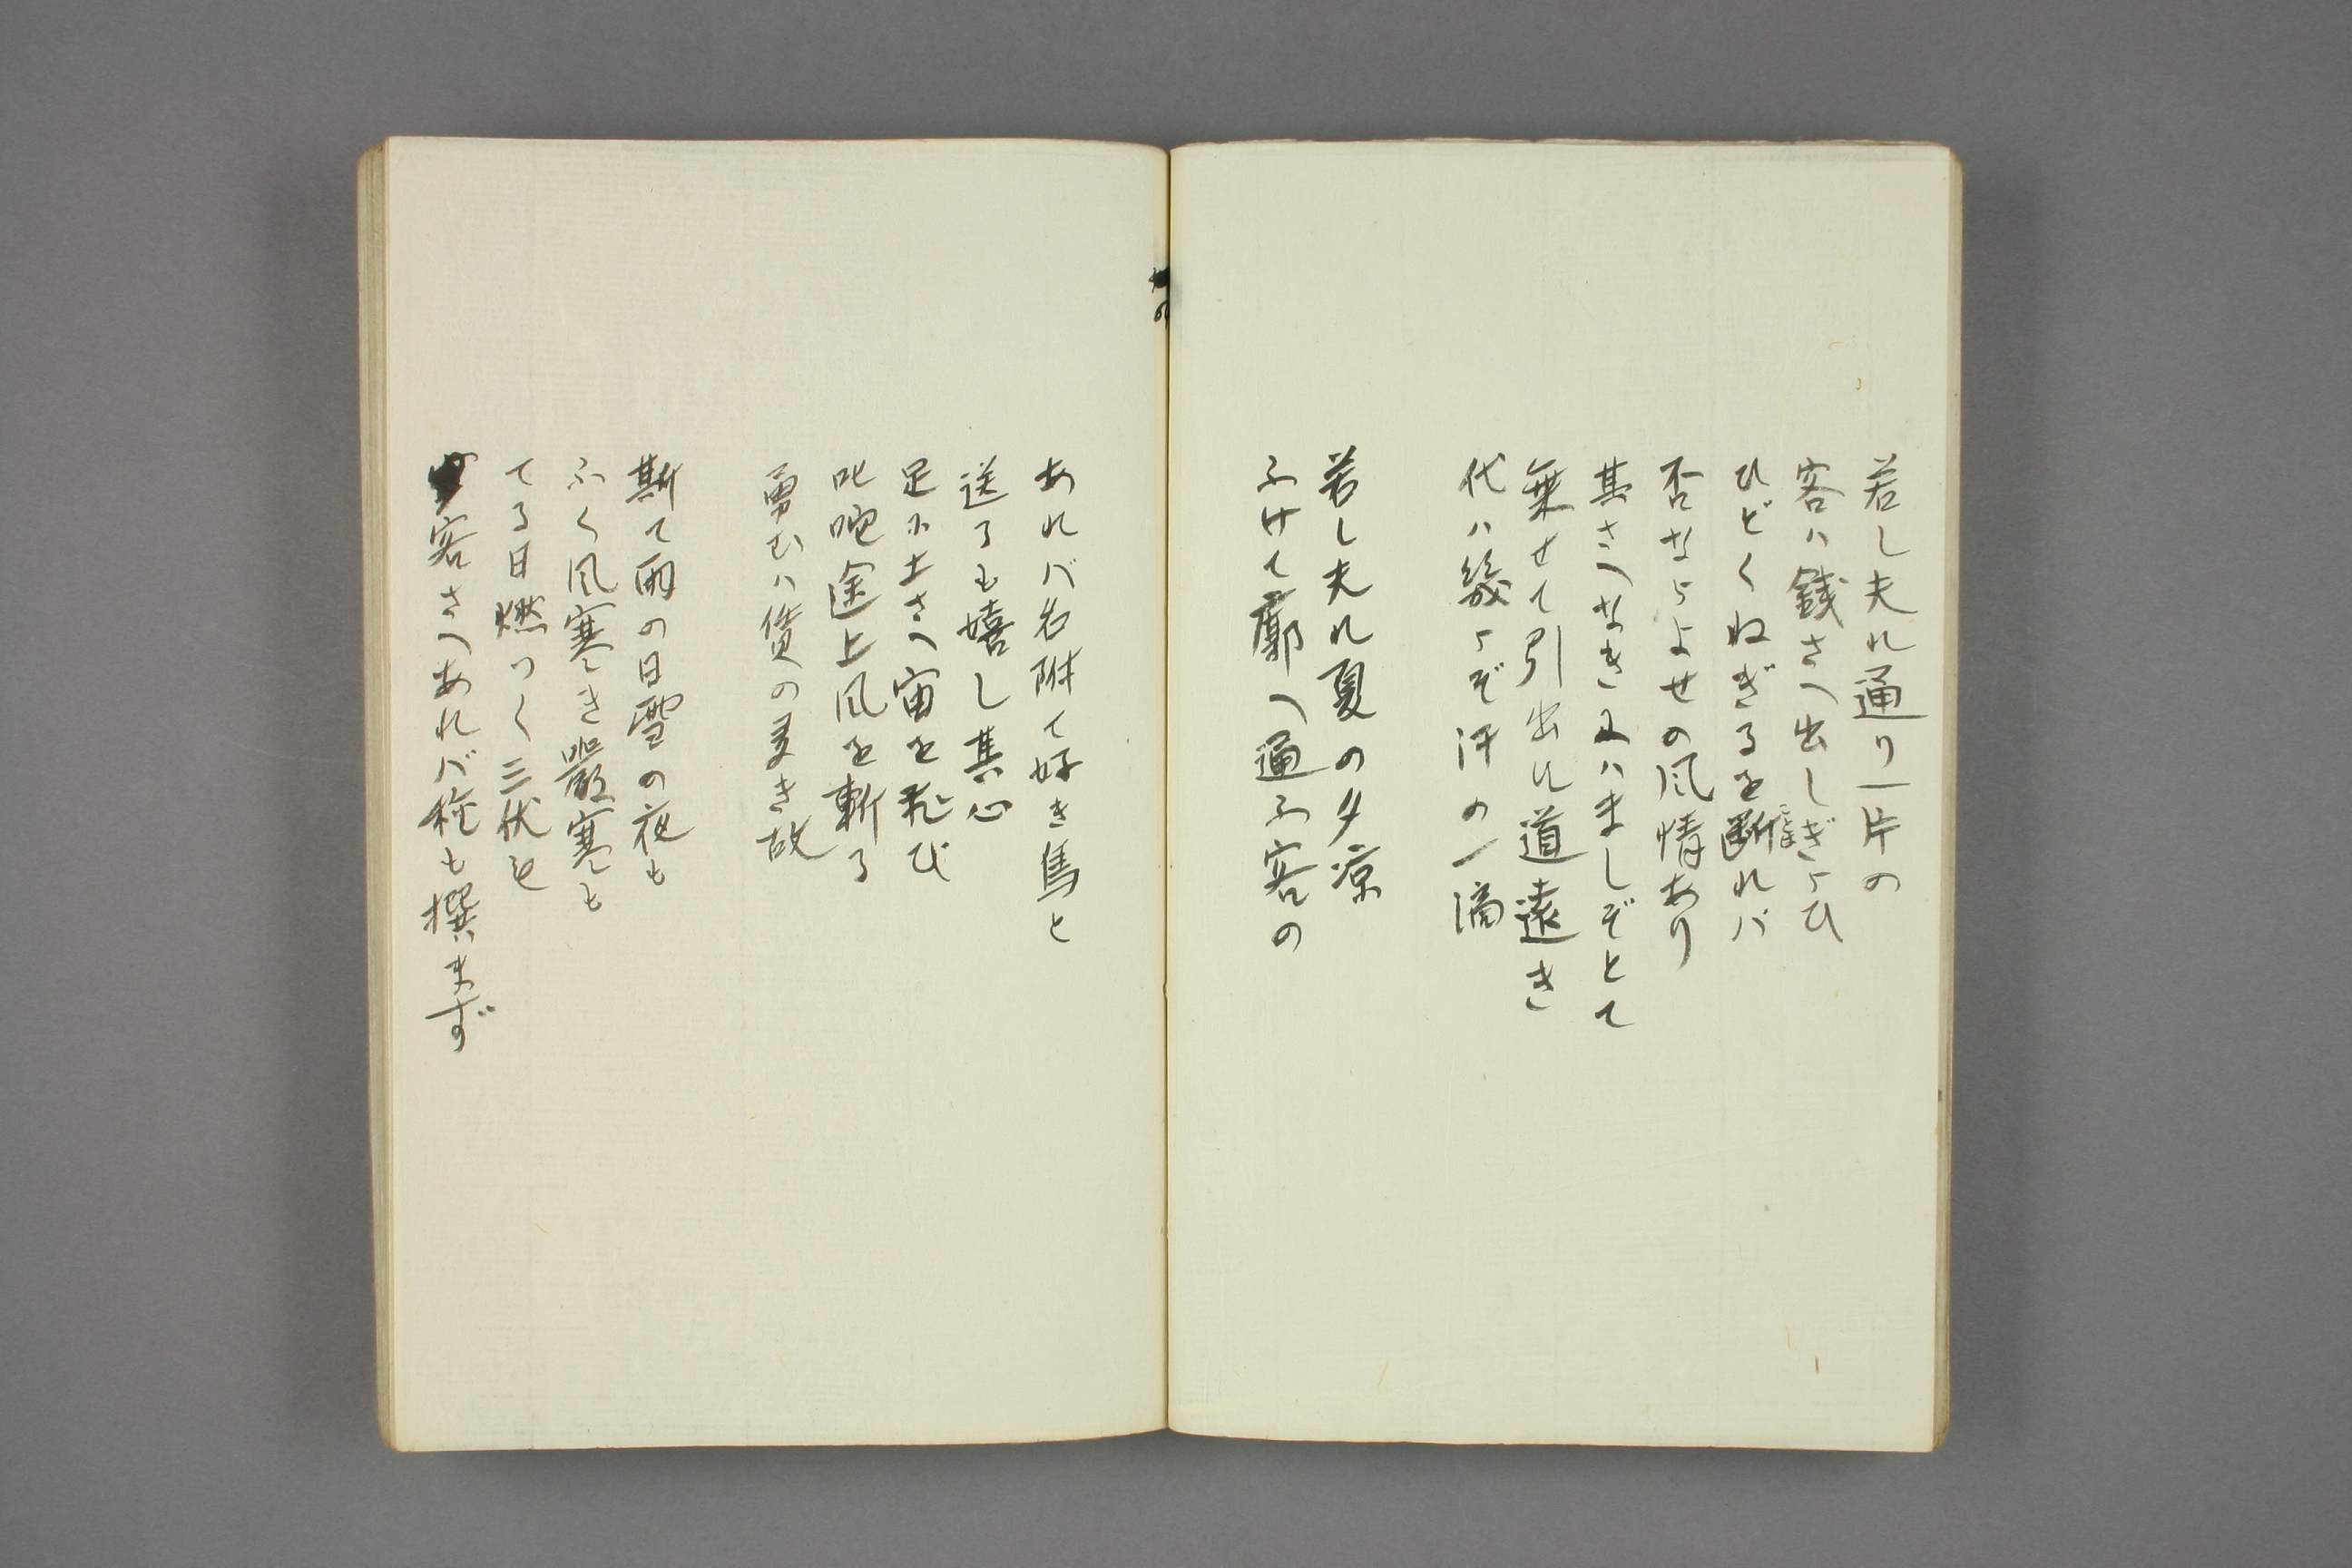 若し夫れ通り一片の
客ハ銭さへ出しぎらひ
ひどくねぎるを断れバ
否ならよせの風情あり
其さへなきにハましぞとて
乗せて引出れ道遠き
代ハ幾らぞ汗の一滴
若し夫れ夏の夕涼
ふけて廓へ通ふ客の
あれバ名附て好き馬と
送るも嬉し其心
足に土さへ宙を飛び
叱咤途上風を斬る
勇むハ賃の多き故
斯て雨の日雪の夜も
ふく風寒き嚴寒も
てる日燃つく三伏も
客さへあれバ
も撰まず